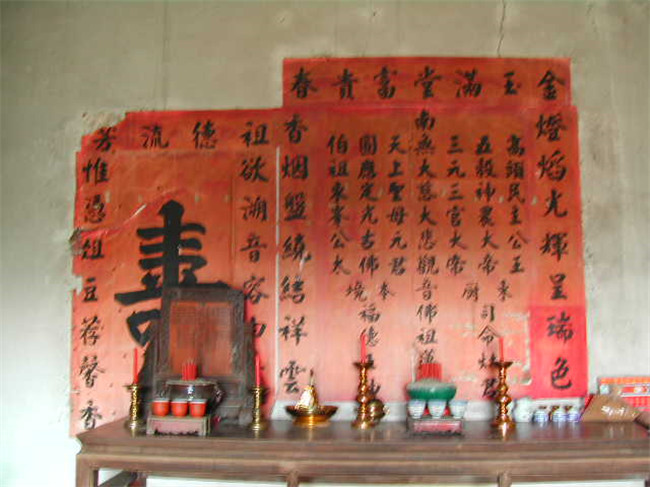 金玉滿堂富貴春
燈焰光輝呈瑞色
高頭民主公王
五穀神農大帝
東厨司命灶君
三元三官大帝
南無大慈大悲觀音佛祖
天上聖母元君
圓應定光古佛
本境福德
伯祖東峯公太
香烟盤繞結祥雲
祖德流芳
欲溯音容
壽
惟憑俎豆荐馨香